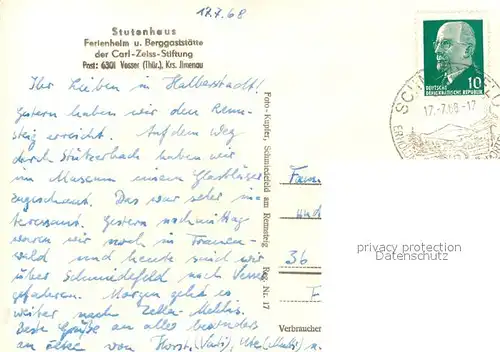 17.7.68
Stutenhaus
Ferienheim u. Berggaststätte
der Carl-Zeiss-Stiftung
Post: 6301 Vesser (Thür.), Krs. Ilmenau
Ihr Lieben in Halberstadt!
Gestern haben wir den Renn-
steig erreicht. Auf dem Weg
durch Stützerbach haben wir
im Museum einem Glasbläser
zugeschaut. Das war sehr in-
teressant. Gestern nachmittag
waren wir noch in Frauen-
wald und heute sind wir
über Schmiedefeld nach Vesser
gefahren. Morgen geht es
weiter nach Zella-Mehlis.
Beste Grüße an alle besonders
von Horst (Vati), Ute (Mutti) u.
Foto-Kupfer, Schmiedefeld am Rennsteig Reg. Nr. 17
DEUTSCHE
DEMOKRATISCHE REPUBLIK
10
17.-7.68-17
und
36
privacy protection
Datenschutz
Verbraucher